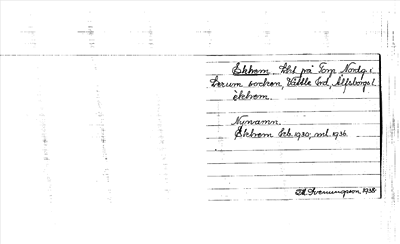 Ekhem. Lht på Torp Nordg. i
Lerum socken, Vättle hd, Älfsborgs l.
ékhem.
Nynamn.
Ekhem Jrb 1930, ml. 1936.
Svenungson 1938